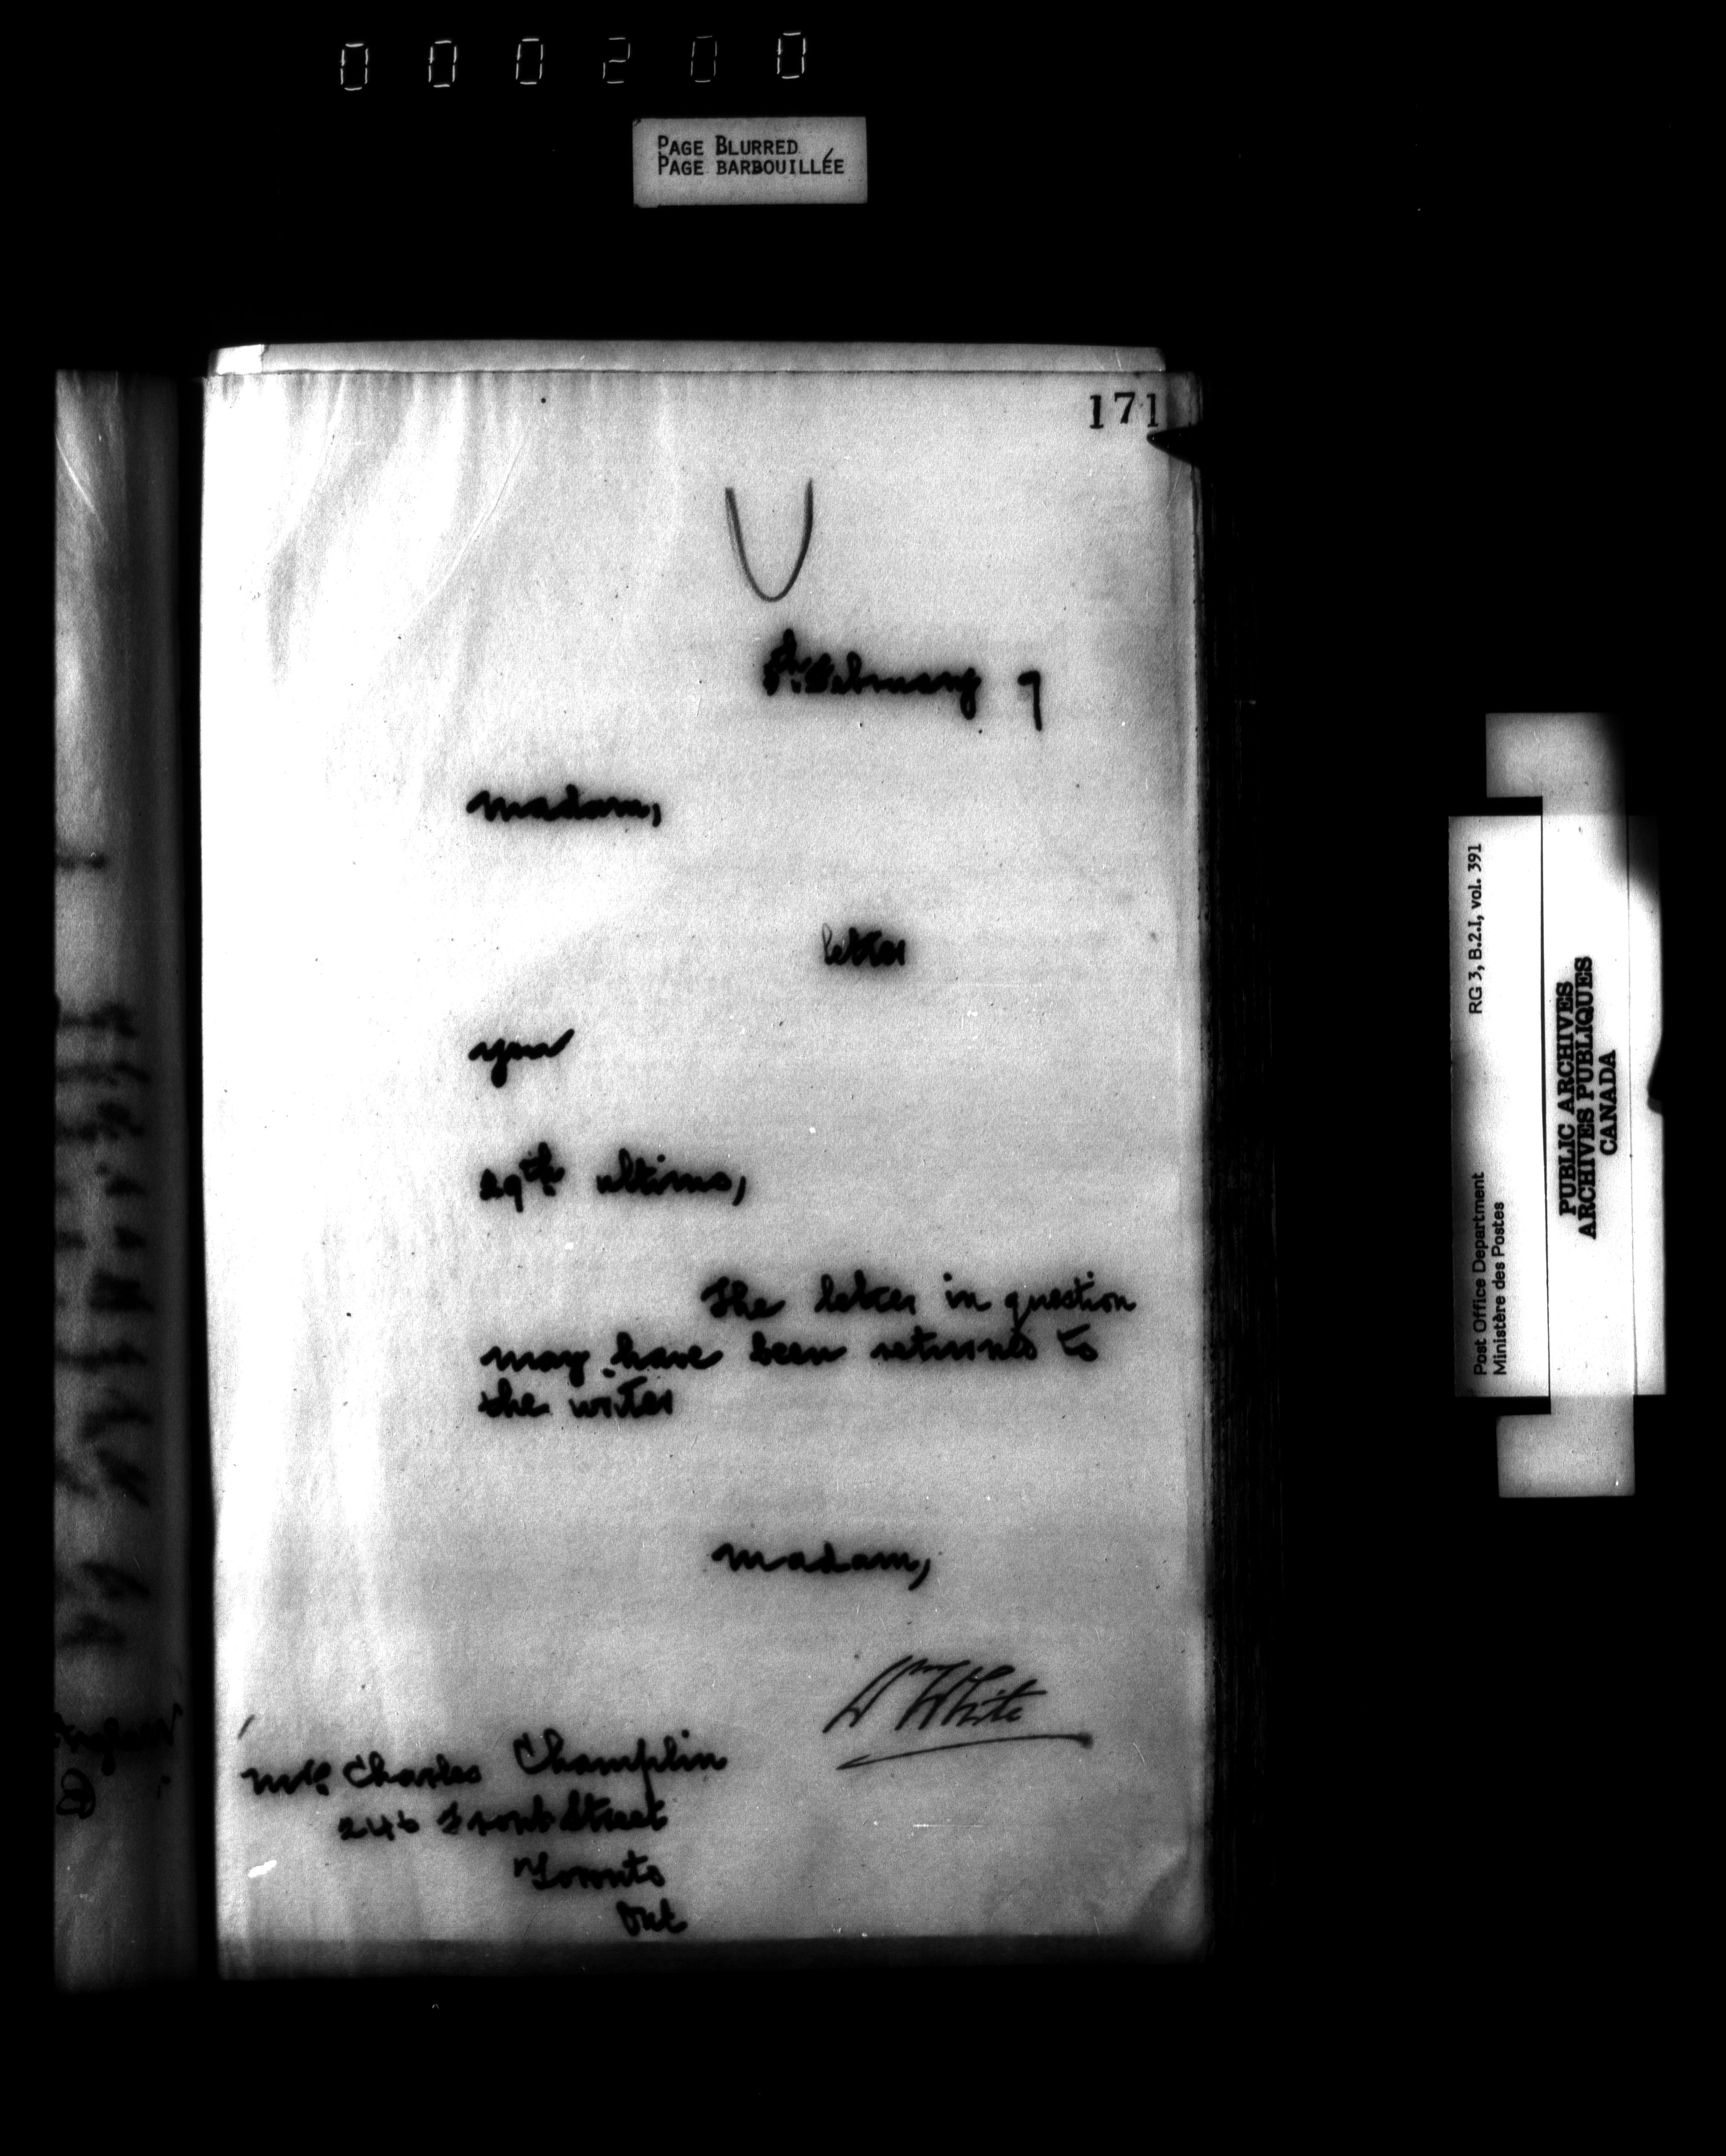 000200
PAGE BLURRED
PAGE BARBOUILLÉE
171
February 7
Madam,
letter
your
29th ultimo,
The letter in question
may have been returned to
the writer
Madam,
Wm White
Mrs. Charles Champlin
246 Front Street
Toronto
Ont
RG 3, B.2.I, vol. 391
Post Office Department
Ministère des Postes
PUBLIC ARCHIVES
ARCHIVES PUBLIQUES
CANADA